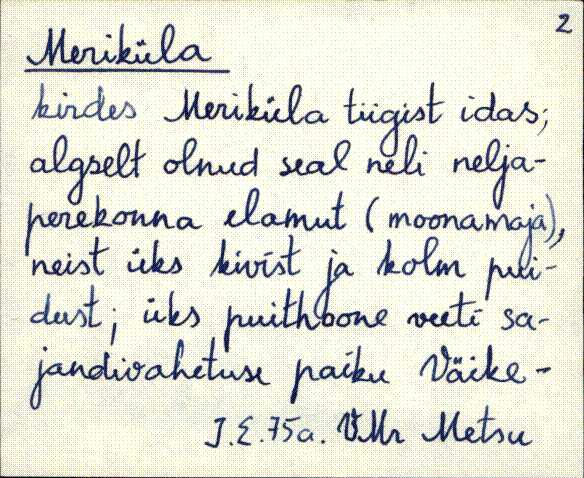 2
Meriküla
kirdes Meriküla tiigist idas;
algselt olnud seal neli nelja-
perekonna elamut (moonamaja),
neist üks kivist ja kolm pui-
dust; üks puithoone veeti sa-
jandivahetuse paiku Väike-
J.E.75a. VMr Metsu